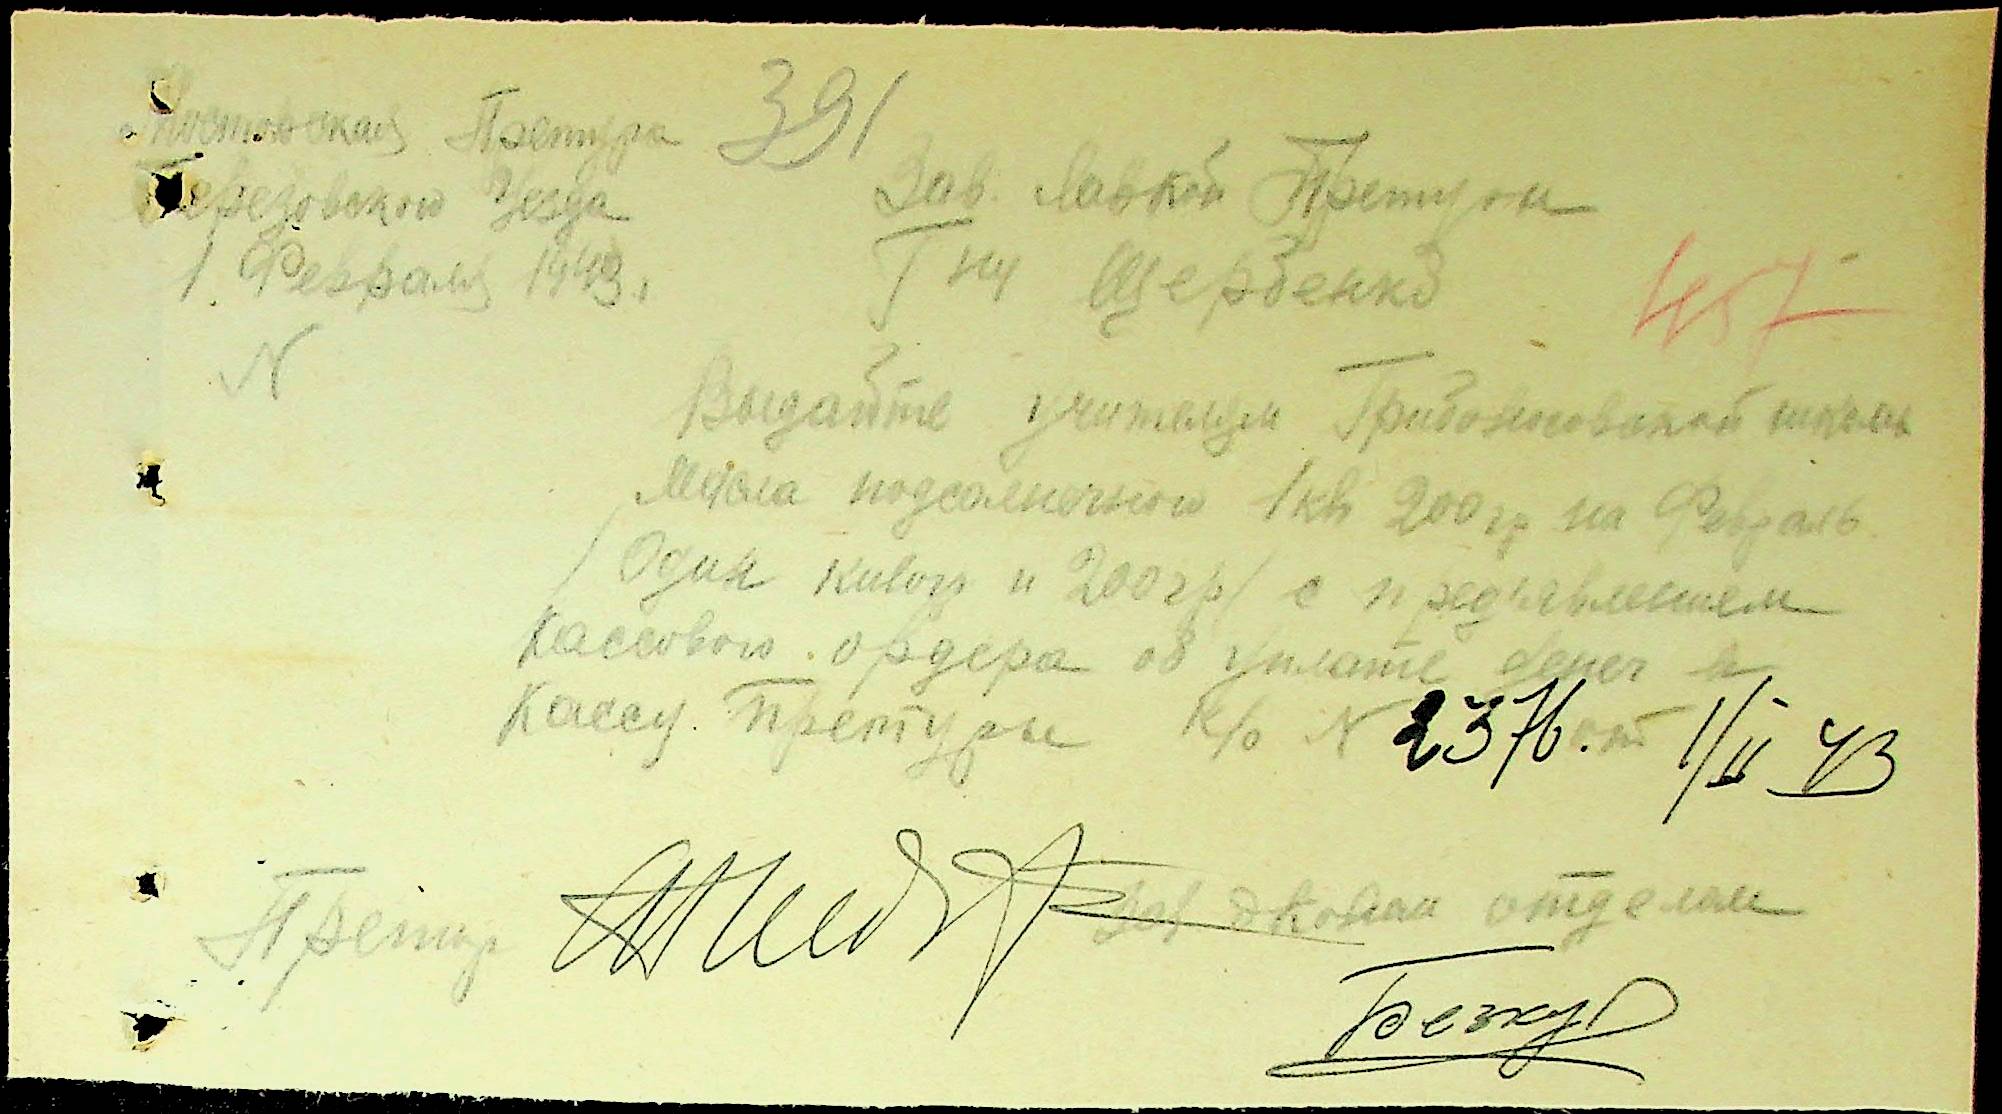 Мостовская Претура
Березовского Уезда
1 Февраля 1943.
N
391
Зав. Лавкой Претуры
Г ну Щербенко
457
Выдайте учителям школы
Масла подсолнечного 1 кг 200 гр на Февраль
/Один килогр и 200 гр/ с предъявлением
Кассового ордера об уплате денег в
Кассу Претуры К/о N 2376. от 1/II 43
Претор
Зав экон отделом
Безкур